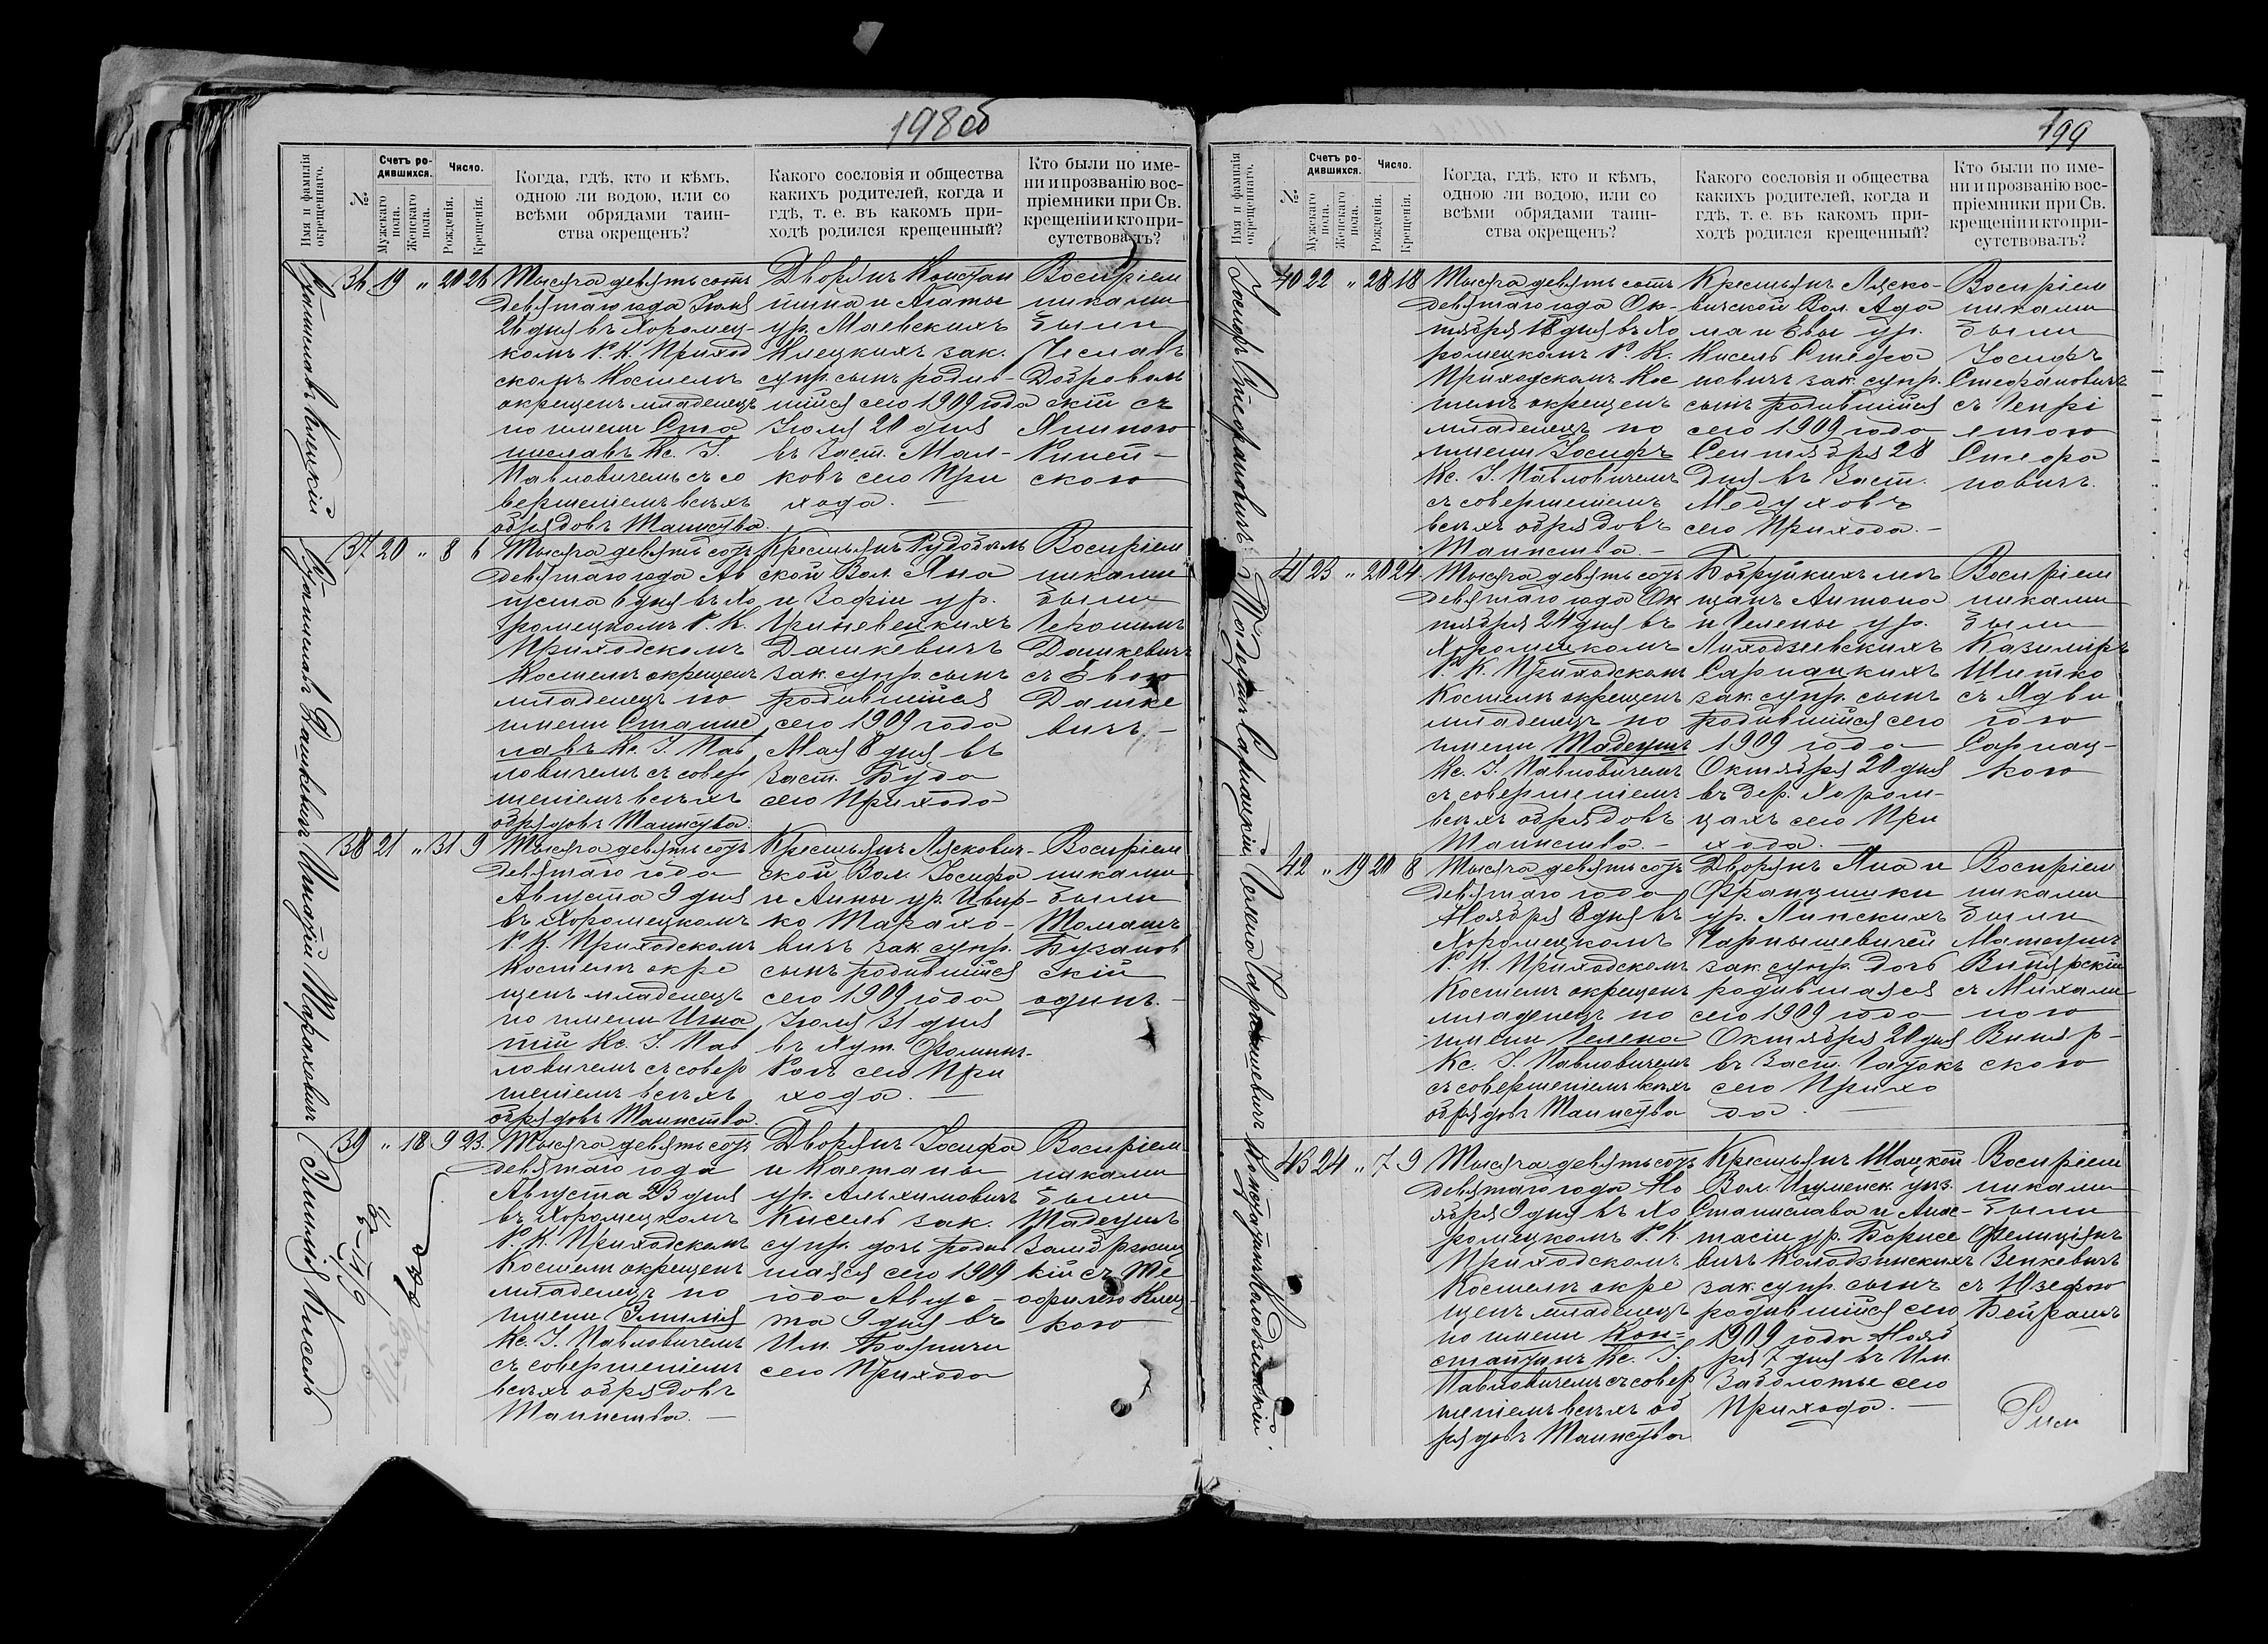 198об
Имя и фамилія
окрещеннаго.
№
Счетъ ро-
дившихся.
Мужскаго
пола.
Женскаго
пола.
Число.
Рожденія.
Крещенія.
Когда, гдѣ, кто и кѣмъ,
одною ли водою, или со
всѣми обрядами таин-
ства окрещенъ?
Какого сословія и общества
какихъ родителей, когда и
гдѣ, т. е. въ какомъ при-
ходѣ родился крещенный?
Кто были по име-
ни и прозванію вос-
пріемники при Св.
крещеніи и кто при-
сутствовалъ?
Станиславъ Клецкій
36 19 " 20 26
Тысяча девятьсотъ
девятаго года Іюля
26 дня въ Хоромец-
комъ Р. К. Приход
скомъ Костелѣ
окрещенъ младенецъ
по имени Ста
ниславъ Кс. І.
Павловичемъ съ со
вершеніемъ всѣхъ
обрядовъ Таинства.
Дворянъ Констан
тина и Агаты
ур. Маевскихъ
Клецкихъ зак.
супр. сынъ родив-
шійся сего 1909 года
Іюля 20 дня
въ Заст. Мал-
ковъ сего При
хода. —
Воспріем
никами
были
Чеславъ
Доброволь
скій съ
Анною
Риней-
скою
Станиславъ Дашкевичъ
37 20 " 8 6
Тысяча девятьсотъ
девятаго года Ав
густа 6 дня въ Хо
ромецкомъ Р. К.
Приходскомъ
Костелѣ окрещенъ
младенецъ по
имени Станис
лавъ Кс. І. Пав
ловичемъ съ совер
шеніемъ всѣхъ
обрядовъ Таинства.
Крестьянъ Рудобель
ской Вол. Яна
и Зофіи ур.
Гриневецкихъ
Дашкевичъ
зак. супр. сынъ
родившійся
сего 1909 года
Мая 8 дня въ
Заст. Буда
сего Прихода
Воспріем
никами
были
Геронимъ
Дашкевичъ
съ Евою
Дашке
вичъ. —
Игнатій Тараховичъ
38 21 " 31 9
Тысяча девятьсотъ
девятаго года
Августа 9 дня
въ Хоромецкомъ
Р. К. Приходскомъ
Костелѣ окре
щенъ младенецъ
по имени Игна
тій Кс. І. Пав
ловичемъ съ совер
шеніемъ всѣхъ
обрядовъ Таинства.
Крестьянъ Ляскович-
ской Вол. Іосифа
и Анны ур. Цвир-
ко Тарахо-
вичъ зак. супр.
сынъ родившійся
сего 1909 года
Іюля 31 дня
въ Хут.
Рогъ сего При
хода. —
Воспріем
никами
были
Томашъ
Бузанов
скій
одинъ. —
Эмилія Кисель
39 " 18 9 23.
Тысяча девятьсотъ
девятаго года
Августа 23 дня
въ Хоромецкомъ
Р. К. Приходскомъ
Костелѣ окрещенъ
младенецъ по
имени Эмилія
Кс. І. Павловичемъ
съ совершеніемъ
всѣхъ обрядовъ
Таинства. —
Дворянъ Іосифа
и Каетаны
ур. Альхимовичъ
Кисель зак.
супр. дочь родив
шаяся сего 1909
года Авгус-
та 9 дня въ
Им.
сего Прихода
Воспріем
никами
были
Тадеушъ
съ Те
офилею Клец
кою
199
Имя и фамилія
окрещеннаго.
№
Счетъ ро-
дившихся.
Мужскаго
пола.
Женскаго
пола.
Число.
Рожденія.
Крещенія.
Когда, гдѣ, кто и кѣмъ,
одною ли водою, или со
всѣми обрядами таин-
ства окрещенъ?
Какого сословія и общества
какихъ родителей, когда и
гдѣ, т. е. въ какомъ при-
ходѣ родился крещенный?
Кто были по име-
ни и прозванію вос-
пріемники при Св.
крещеніи и кто при-
сутствовалъ?
Іосифъ Стефановичъ
40 22 " 28 18
Тысяча девятьсотъ
девятаго года Ок-
тября 18 дня въ Хо
ромецкомъ Р. К.
Приходскомъ Кос
телѣ окрещенъ
младенецъ по
имени Іосифъ
Кс. І. Павловичемъ
съ совершеніемъ
всѣхъ обрядовъ
Таинства. —
Крестьянъ Ляско-
вичской Вол. Ада
ма и Евы ур.
Кисель Стефа
новичъ зак. супр.
сынъ родившійся
сего 1909 года
Сентября 28
дня въ Заст.
Медуховъ
сего Прихода. —
Воспріем
никами
были
Іосифъ
Стефановичъ
съ Генрі
етою
Стефа
новичъ.
Тадеушъ Сарнацкій
41 23 " 20 24
Тысяча девятьсотъ
девятаго года Ок
тября 24 дня въ
Хоромецкомъ
Р. К. Приходскомъ
Костелѣ окрещенъ
младенецъ по
имени Тадеушъ
Кс. І. Павловичемъ
съ совершеніемъ
всѣхъ обрядовъ
Таинства. —
Бобруйкихъ мѣ
щанъ Антона
и Гелены ур.
Лиходзіевскихъ
Сарнацкихъ
зак. супр. сынъ
родившійся сего
1909 года
Октября 20 дня
въ дер. Хором-
цахъ сего При
хода. —
Воспріем
никами
были
Казимиръ
Шитко
съ Ядви
гою
Сарнац-
кою
Гелена Чарнышевичъ
42 " 19 20 8
Тысяча девятьсотъ
девятаго года
Ноября 8 дня въ
Хоромецкомъ
Р. К. Приходскомъ
Костелѣ окрещенъ
младенецъ по
имени Гелена
Кс. І. Павловичемъ
съ совершеніемъ всѣхъ
обрядовъ Таинства
Дворянъ Яна и
Францишки
ур. Липскихъ
Чарнышевичей
зак. супр. дочь
родившаяся
сего 1909 года
Октября 20 дня
въ Заст. Гатокъ
сего Прихо
да. —
Воспріем
никами
были
Матеушъ
Винярскій
съ Михали
ною
Виняр-
скою
Константинъ Колодзинскій
43 24 " 7 9
Тысяча девятьсотъ
девятаго года Но
ября 9 дня въ Хо
ромецкомъ Р. К.
Приходскомъ
Костелѣ окре
щенъ младенецъ
по имени Кон=
стантинъ Кс. І.
Павловичемъ съ совер
шеніемъ всѣхъ об
рядовъ Таинства
Крестьянъ Шацкой
Вол. Игуменск. уѣз.
Станислава и Анас-
тасіи ур. Борисе
вичъ Колодзинскихъ
зак. супр. сынъ
родившійся сего
1909 года Нояб
ря 7 дня въ Им.
Заболотье сего
Прихода. —
Воспріем
никами
были
Фелиціянъ
Зенкевичъ
съ Юзефою
Бейрашъ